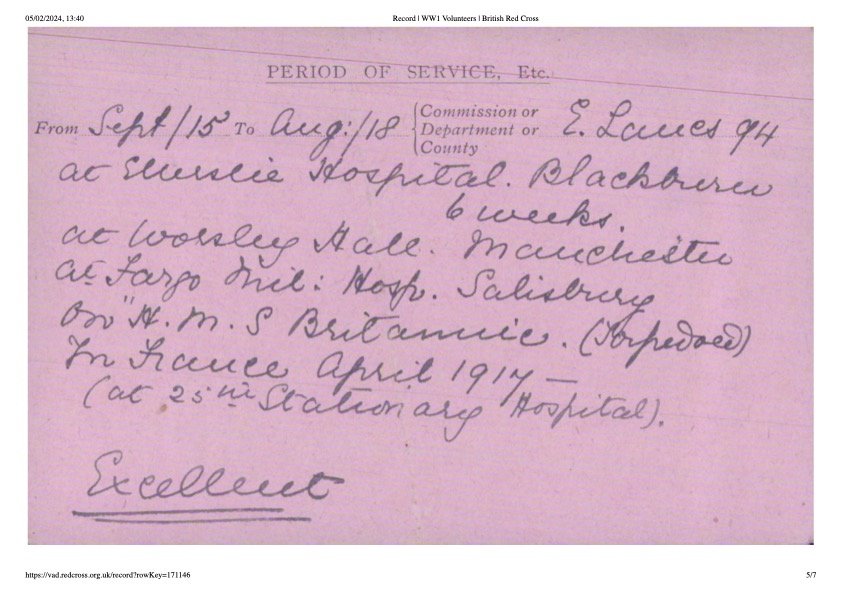 05/02/2024, 13:40 Record | WW1 Volunteers | British Red Cross
PERIOD OF SERVICE, Etc.
From Sept/15 To Aug:/18 {Commission or Department or County E. Lancs 94
at Ellerslie Hospital. Blackburn
6 weeks.
at Worsley Hall. Manchester
at Fargo Mil: Hosp. Salisbury
On "H.M.S Britannic. (Torpedoed)
In France April 1917 —
(at 25th Stationary Hospital).
Excellent
https://vad.redcross.org.uk/record?rowKey=171146 5/7